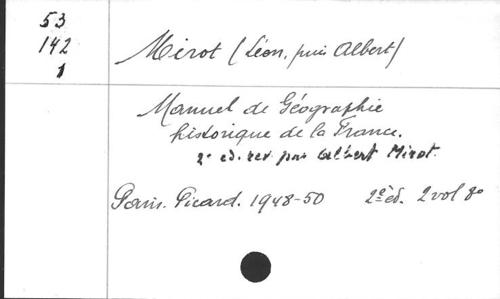 53
142
1
Mirot (Léon, puis Albert)
Manuel de Géographie
historique de la France.
2e ed. rev. par Albert Mirot.
Paris. Picard. 1948-50 2e éd. 2 vol 8º